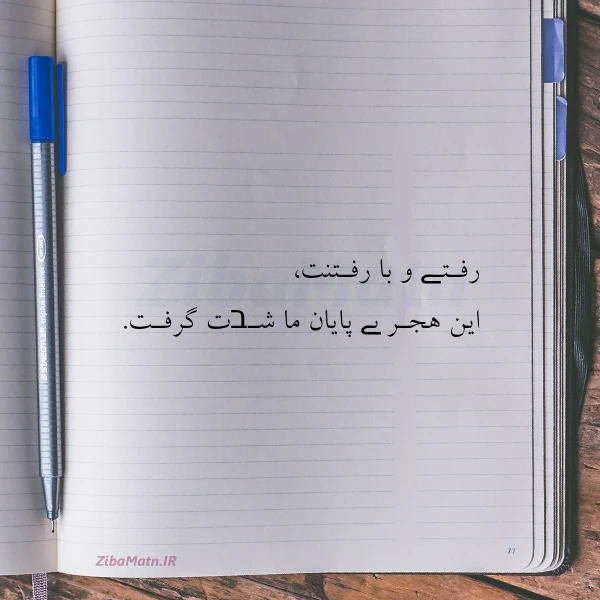 رفتے و با رفتنت،
این هجر بے پایان ما شدت گرفت.
ZibaMatn.IR
77